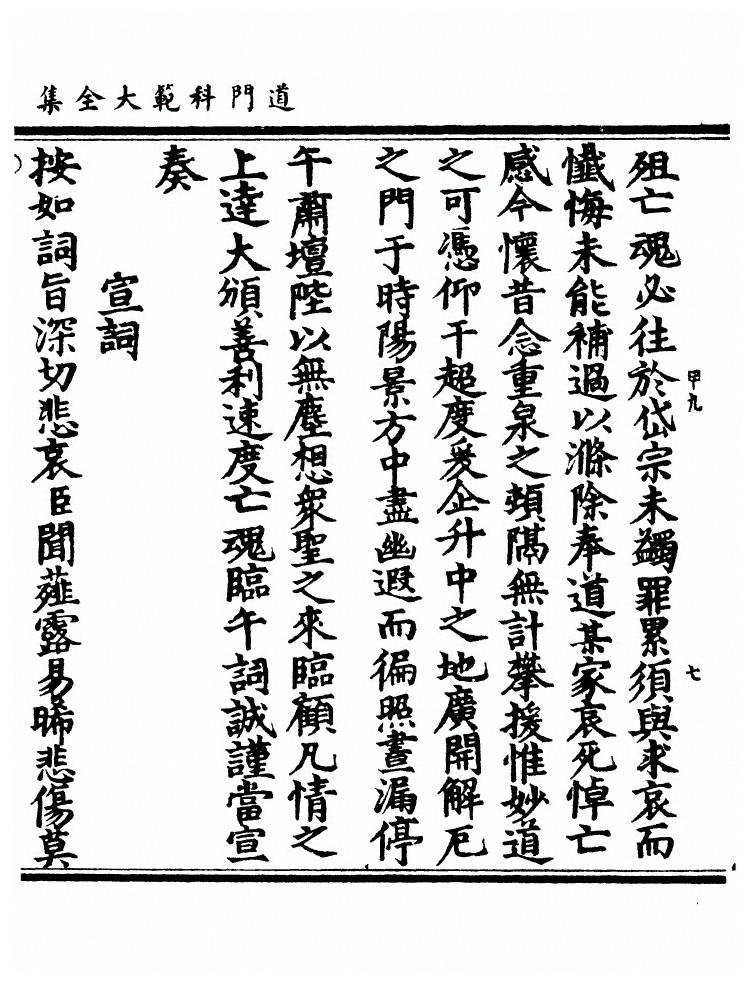 道門科範大全集
甲九
七
殂亡魂必往於岱宗未蠲罪累須與求哀而
懺悔未能補過以滌除奉道某家哀死悼亡
感今懷昔念重泉之頓隔無計攀援惟妙道
之可憑仰干超度爰企升中之地廣開解厄
之門于時陽景方中盡幽遐而徧照晝漏停
午肅壇陛以無塵想衆聖之來臨顧凡情之
上達大頒善利速度亡魂臨午詞誠謹當宣
奏
宣詞
按如詞旨深切悲哀臣聞薤露易晞悲傷莫